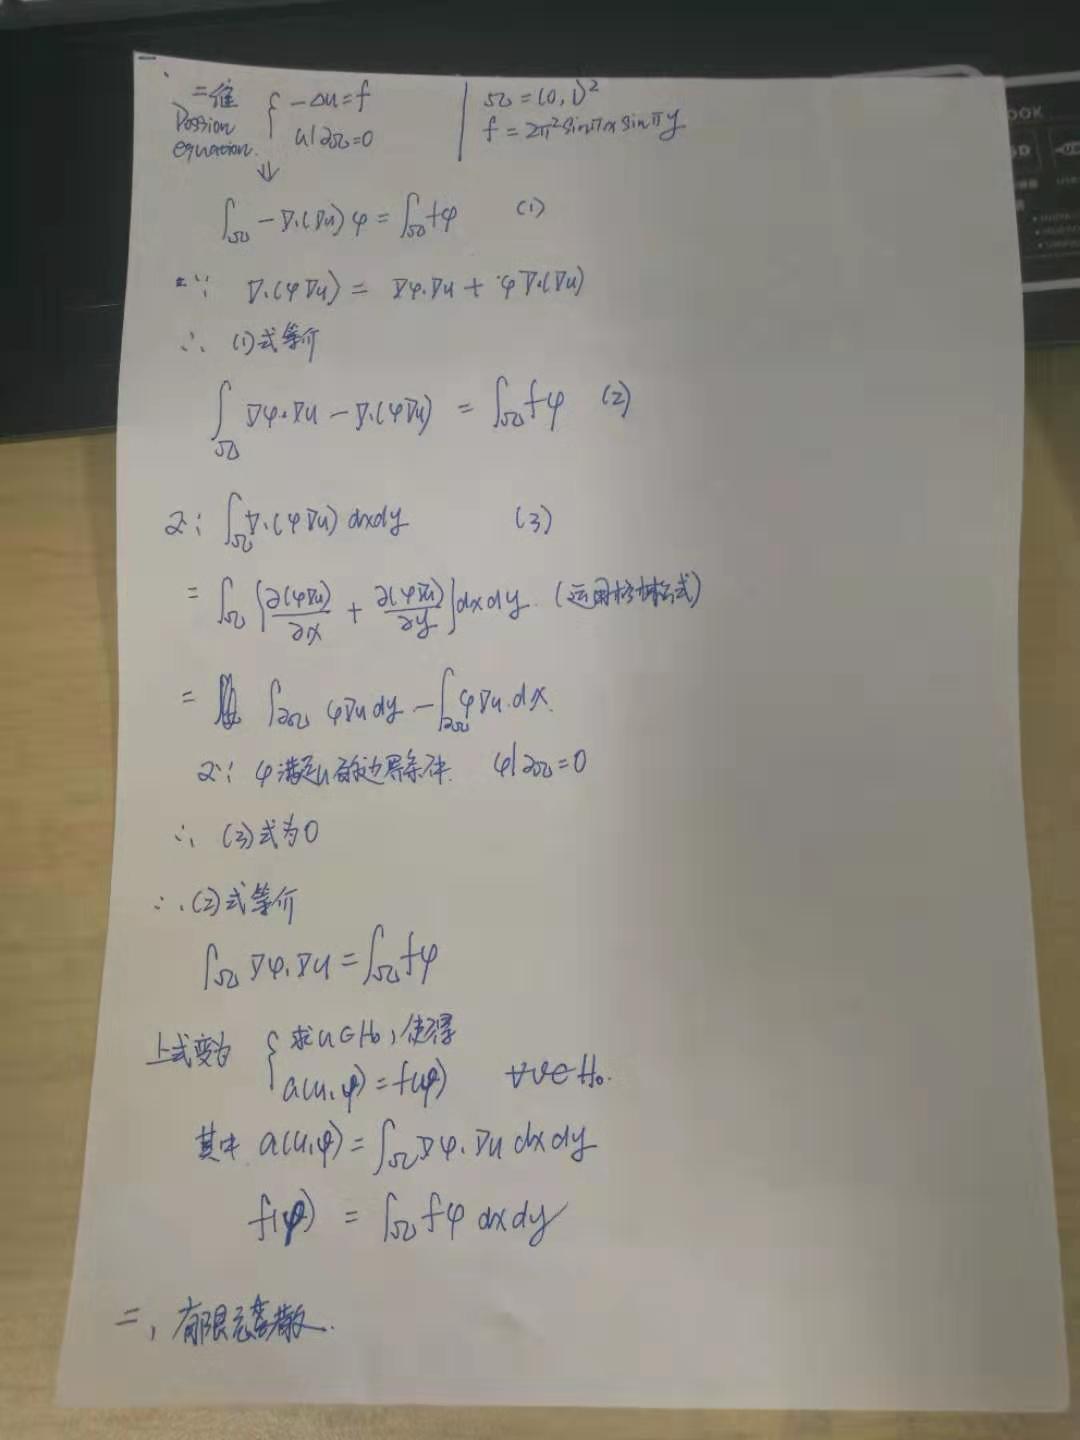 一、
二维 { -Δu=f | Ω=(0,1)²
Possion u|∂Ω=0 | f=2π²sinπx sinπy
equation.
↓
∫Ω -∇·(∇u)φ = ∫Ω fφ (1)
∵ ∇·(φ∇u) = ∇φ·∇u + φ∇·(∇u)
∴ (1)式等价
∫Ω ∇φ·∇u - ∇·(φ∇u) = ∫Ω fφ (2)
又∵ ∫Ω ∇·(φ∇u) dxdy (3)
= ∫Ω [∂(φ∇u)/∂x + ∂(φ∇u)/∂y] dxdy. (运用格林公式)
= ∫∂Ω φ∇u dy - ∫∂Ω φ∇u·dx.
又∵ φ满足u的边界条件. φ|∂Ω=0
∴ (3)式为0
∴ (2)式等价
∫Ω ∇φ·∇u = ∫Ω fφ
上式变为 { 求u∈H₀, 使得
a(u,φ)=f(φ) ∀v∈H₀.
其中 a(u,φ) = ∫Ω ∇φ·∇u dxdy
f(φ) = ∫Ω fφ dxdy
二、有限元离散.